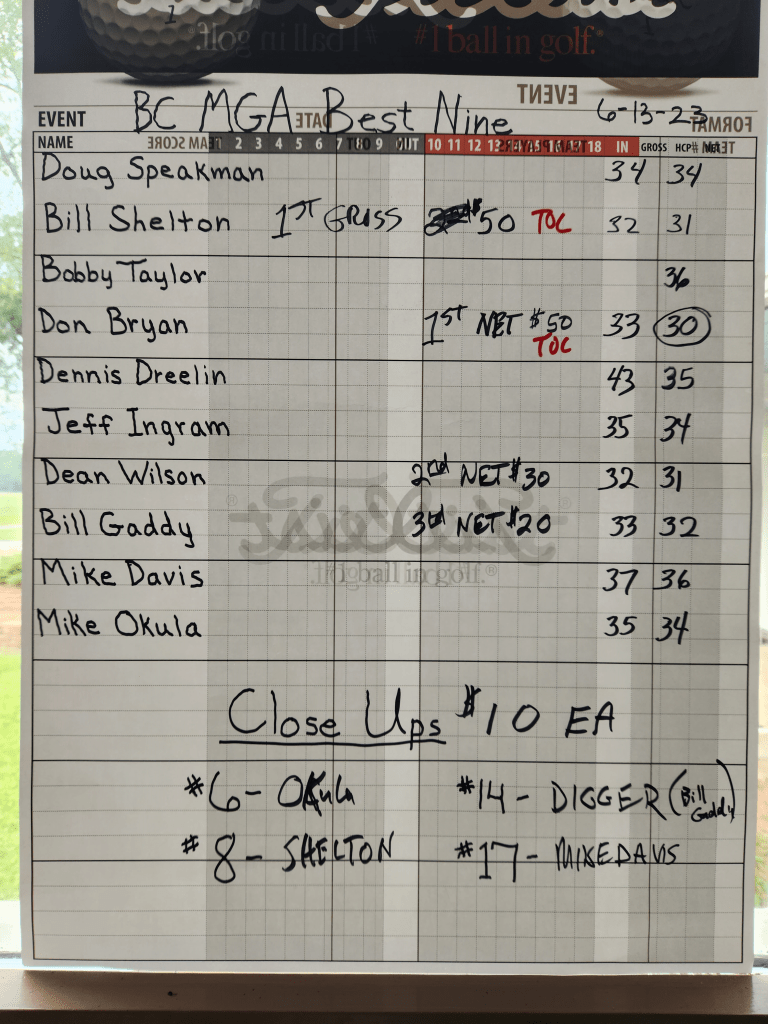 1
#1 ball in golf.®
EVENT
EVENT BC MGA Best Nine 6-13-23
DATE
FORMAT
NAME 2 3 4 5 6 7 8 9 OUT 10 11 12 13 14 15 16 17 18 IN GROSS HCP# NET
TEAM SCORE
Doug Speakman 34 34
Bill Shelton 1ST GROSS $50 TOC 32 31
Bobby Taylor 36
Don Bryan 1ST NET $50 TOC 33 30
Dennis Dreelin 43 35
Jeff Ingram 35 34
Dean Wilson 2nd NET $30 32 31
Bill Gaddy 3rd NET $20 33 32
Titleist®
#1 ball in golf.®
Mike Davis 37 36
Mike Okula 35 34
Close Ups $10 EA
#6 - OKula #14 - DIGGER (Bill Gaddy)
#8 - SHELTON #17 - MIKE DAVIS